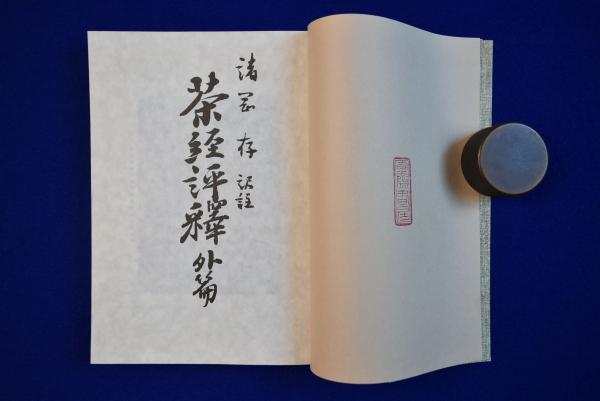 諸岡 存 訳註
茶経評釋 外篇